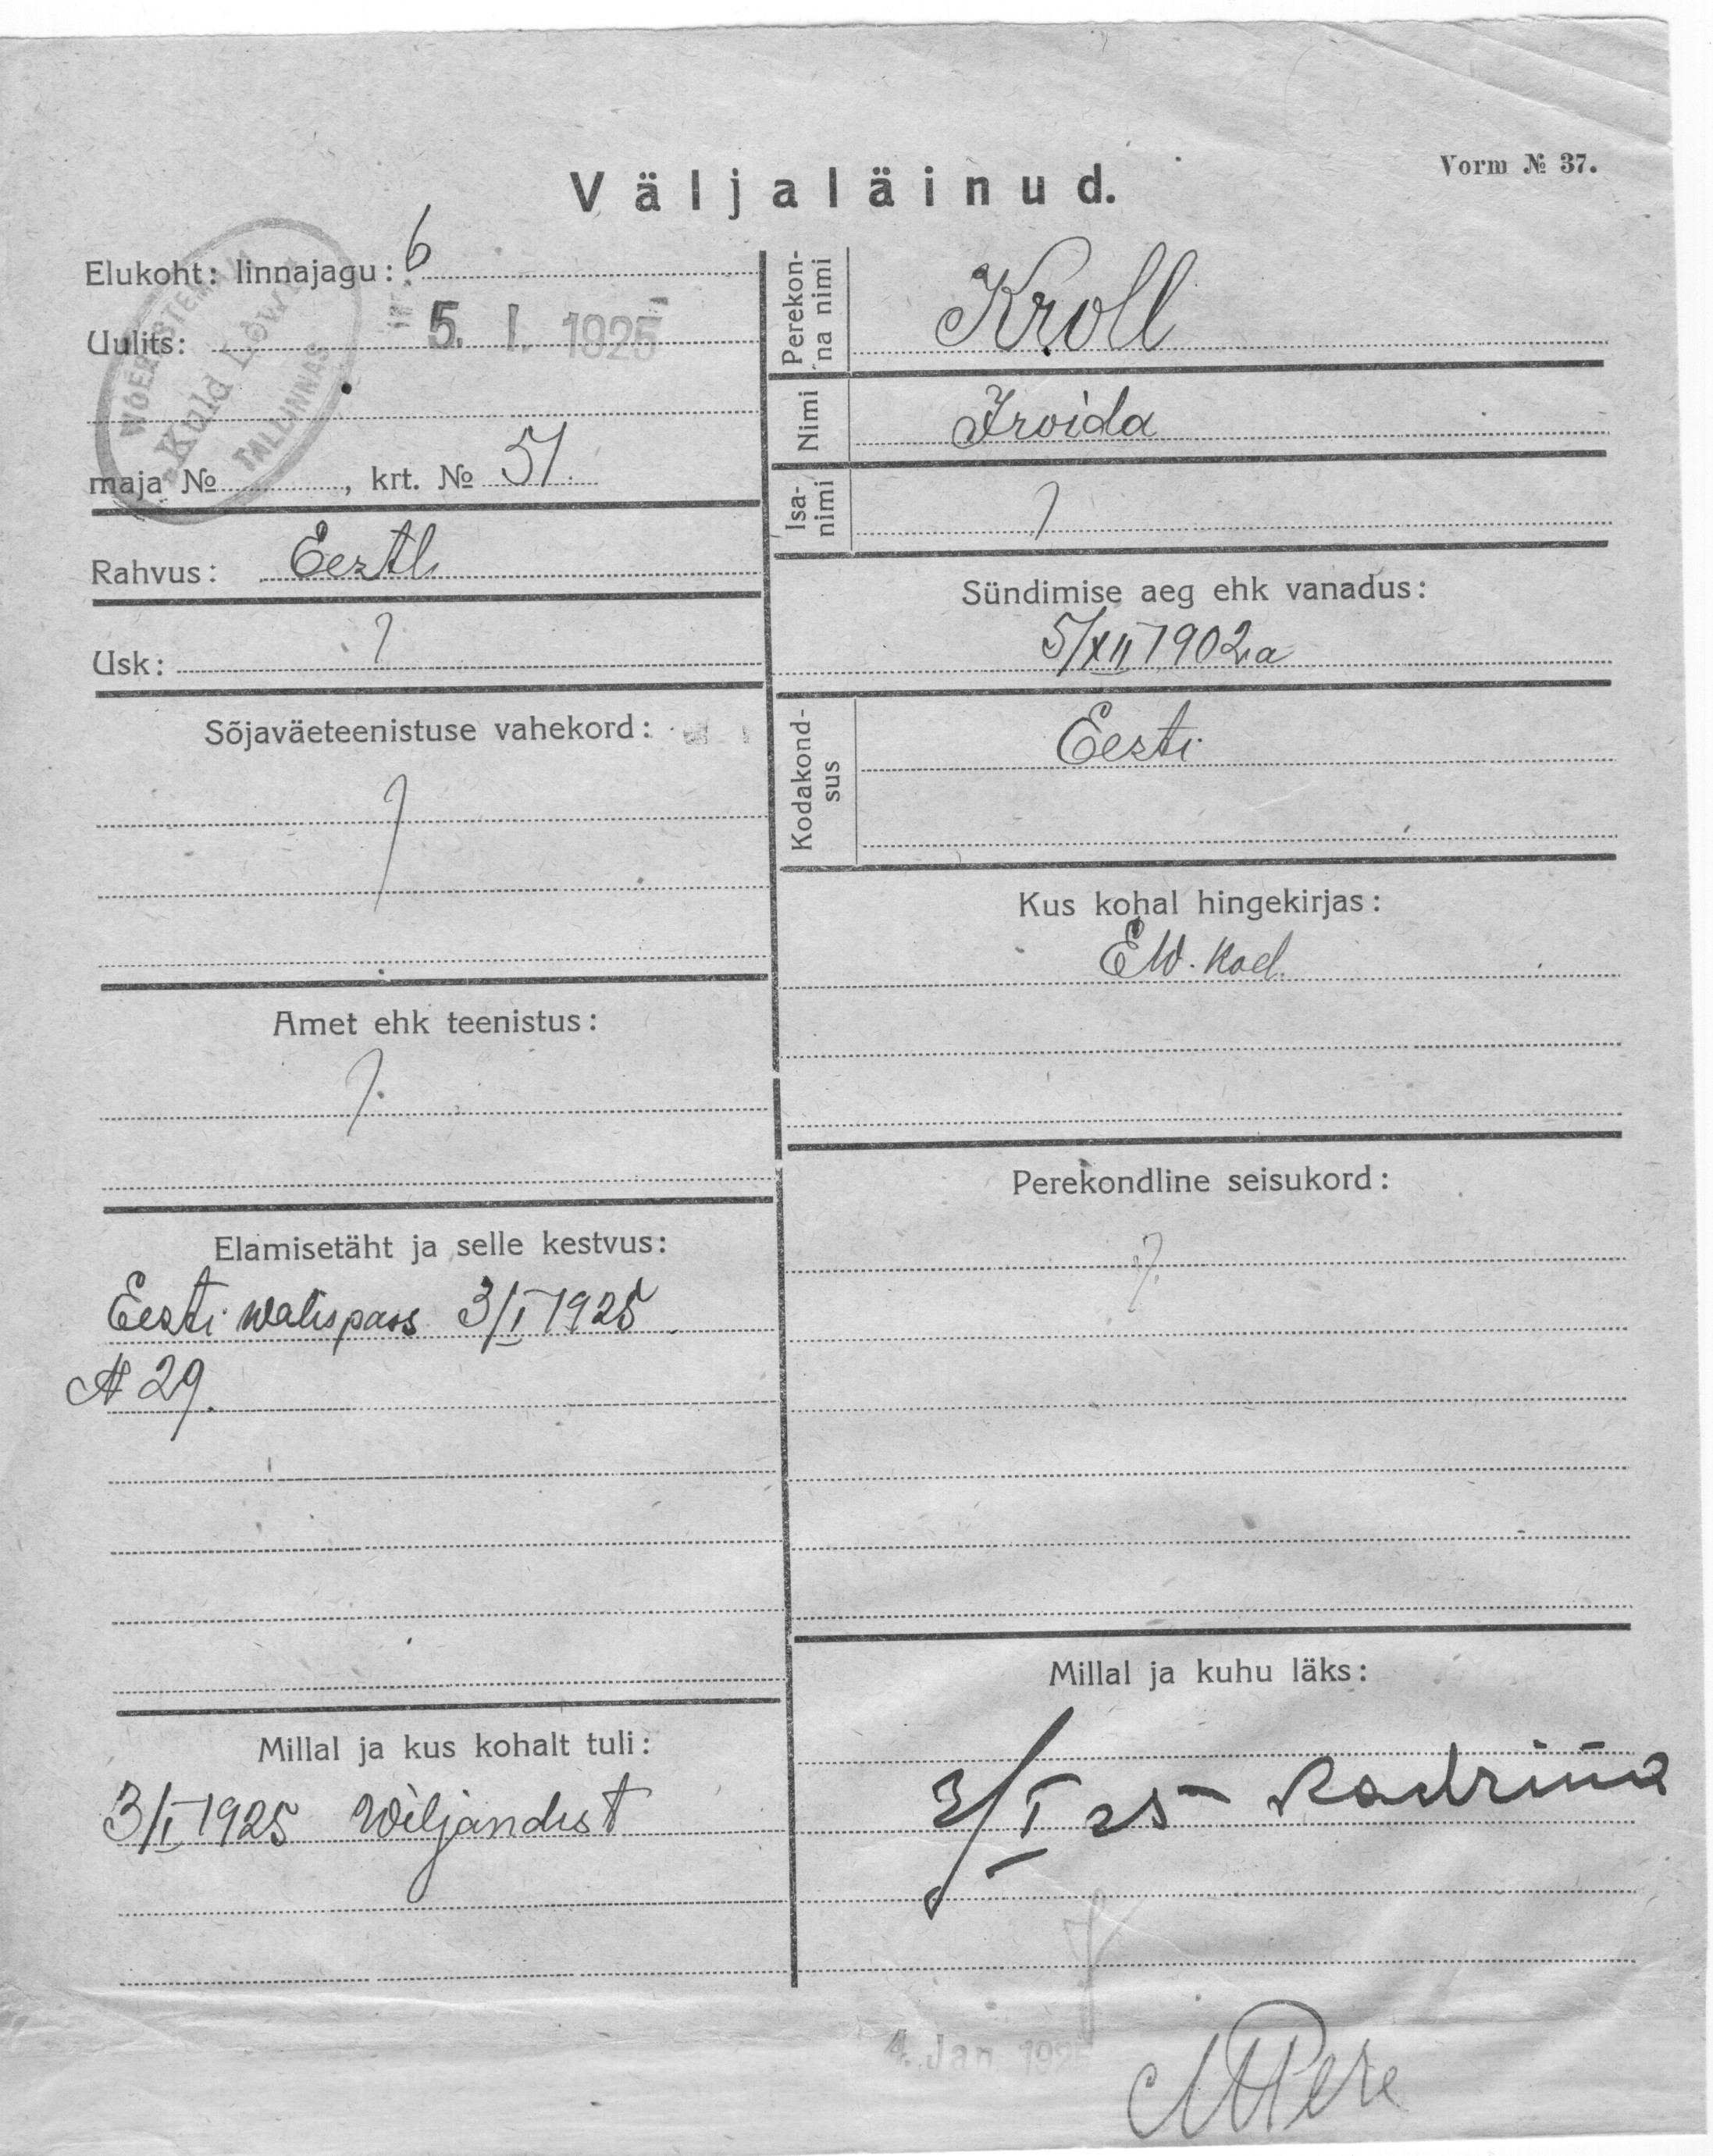 Vorm № 37.
Väljaläinud.
Elukoht: linnajagu: 6
5. I. 1925
Uulits:
WÕERASTEMAJA
„Kuld Lõwi"
TALLINNAS
maja № , krt. № 51.
Rahvus: Eesti
Usk: ?
Sõjaväeteenistuse vahekord:
?
Amet ehk teenistus:
?
Elamisetäht ja selle kestvus:
Eesti walispass 3/I 1925
№ 29.
Millal ja kus kohalt tuli:
3/I 1925 Wiljandist
Perekon-
na nimi
Kroll
Nimi
Froida
Isa-
nimi
?
Sündimise aeg ehk vanadus:
5/XII 1902.a
Kodakond-
sus
Eesti
Kus kohal hingekirjas:
EW. kod.
Perekondline seisukord:
?
Millal ja kuhu läks:
3/I 25 Kadrina
4. Jan 1925